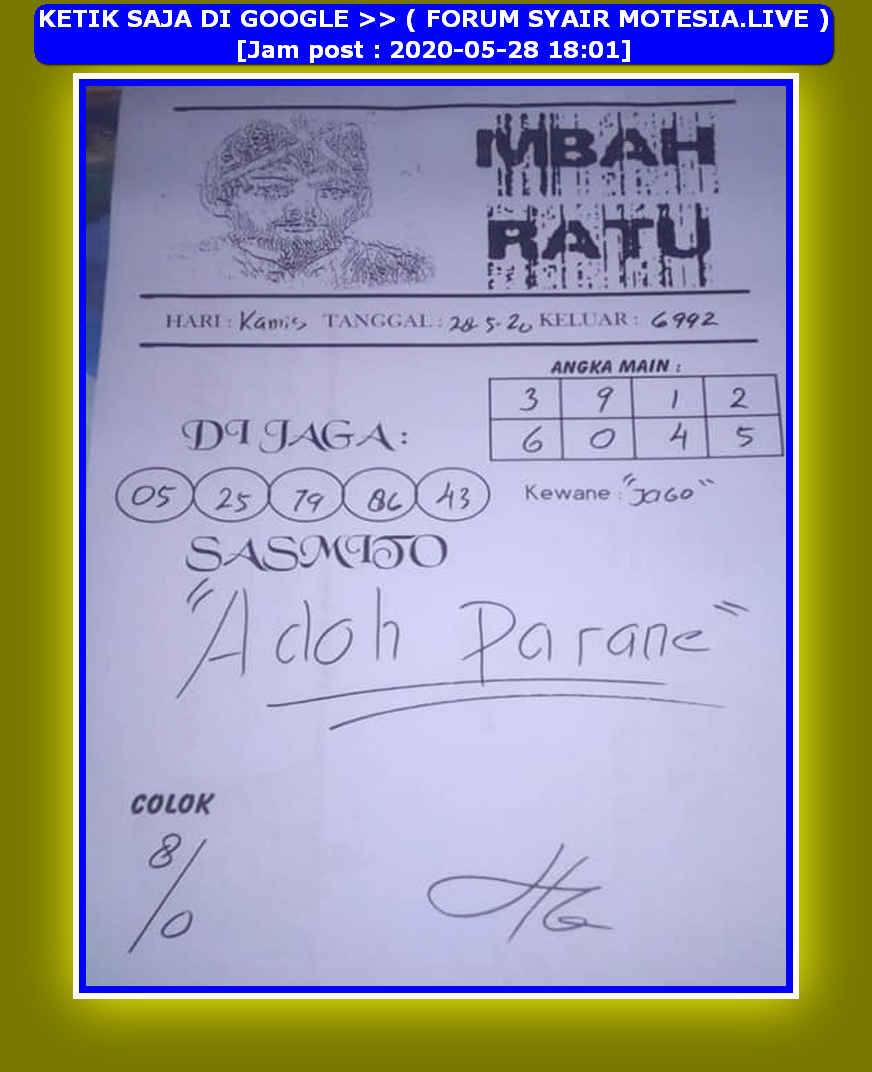 KETIK SAJA DI GOOGLE >> ( FORUM SYAIR MOTESIA.LIVE )
[Jam post : 2020-05-28 18:01]
MBAH
RATU
HARI : Kamis TANGGAL : 28-5-20 KELUAR : 6992
ANGKA MAIN :
3 9 1 2
6 0 4 5
DI JAGA :
05 25 79 86 43
Kewane : "JAGO"
SASMITO
"Adoh Parane"
COLOK
8/0